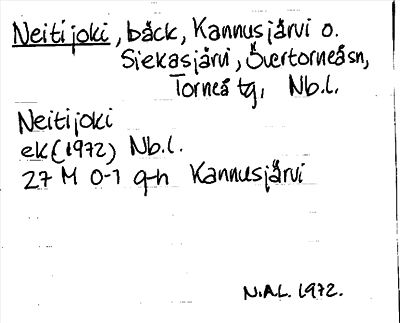 Neitijoki, bäck, Kannusjärvi o.
Siekasjärvi, Övertorneå sn,
Torneå tg, Nb.l.
Neitijoki
ek (1972) Nb.l.
27 M 0-1 g-h Kannusjärvi
N.A.L. 1972.